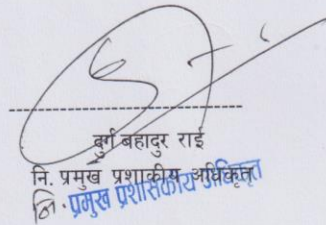 दुर्ग बहादुर राई
नि. प्रमुख प्रशाकीय अधिकृत
नि. प्रमुख प्रशासकीय अधिकृत